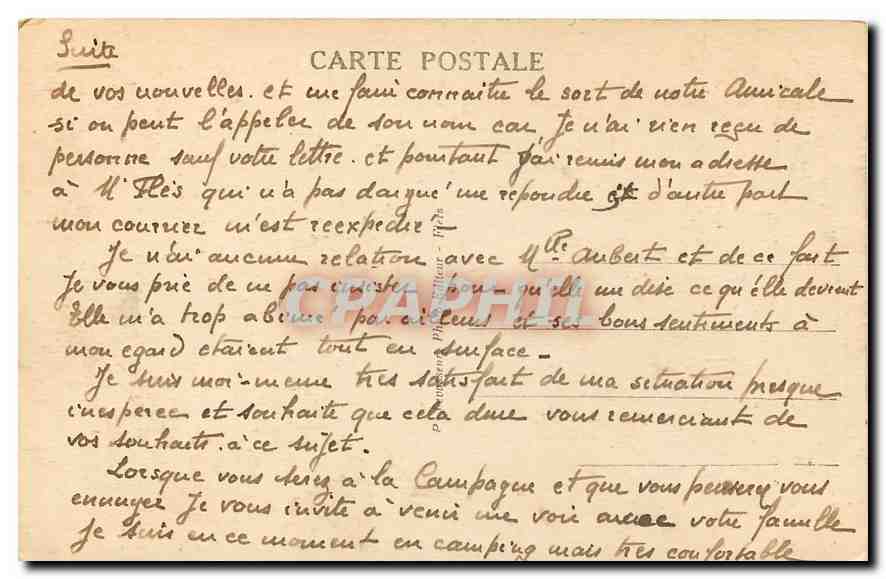 Suite
CARTE POSTALE
de vos nouvelles. et me faire connaitre le sort de notre Amicale
si on peut l'appeler de son nom car Je n'ai rien reçu de
personne sauf votre lettre. et pourtant j'ai remis mon adresse
à Mr Flès qui n'a pas daigné me repondre et d'autre part
mon courrier m'est reexpedié
Je n'ai aucune relation avec Mlle Aubert et de ce fait
Je vous prie de ne pas insister pour qu'elle me dise ce qu'elle devient
Elle m'a trop abimé par ailleurs et ses bons sentiments à
mon egard etaient tout en surface -
Je suis moi-meme tres satisfait de ma situation presque
inesperee et souhaite que cela dure vous remerciant de
vos souhaits à ce sujet.
Lorsque vous serez à la Campagne et que vous penserez vous
ennuyer Je vous invite à venir me voir avec votre famille
Je suis en ce moment en camping mais tres confortable
CPAPHIL
Editeur - Flers